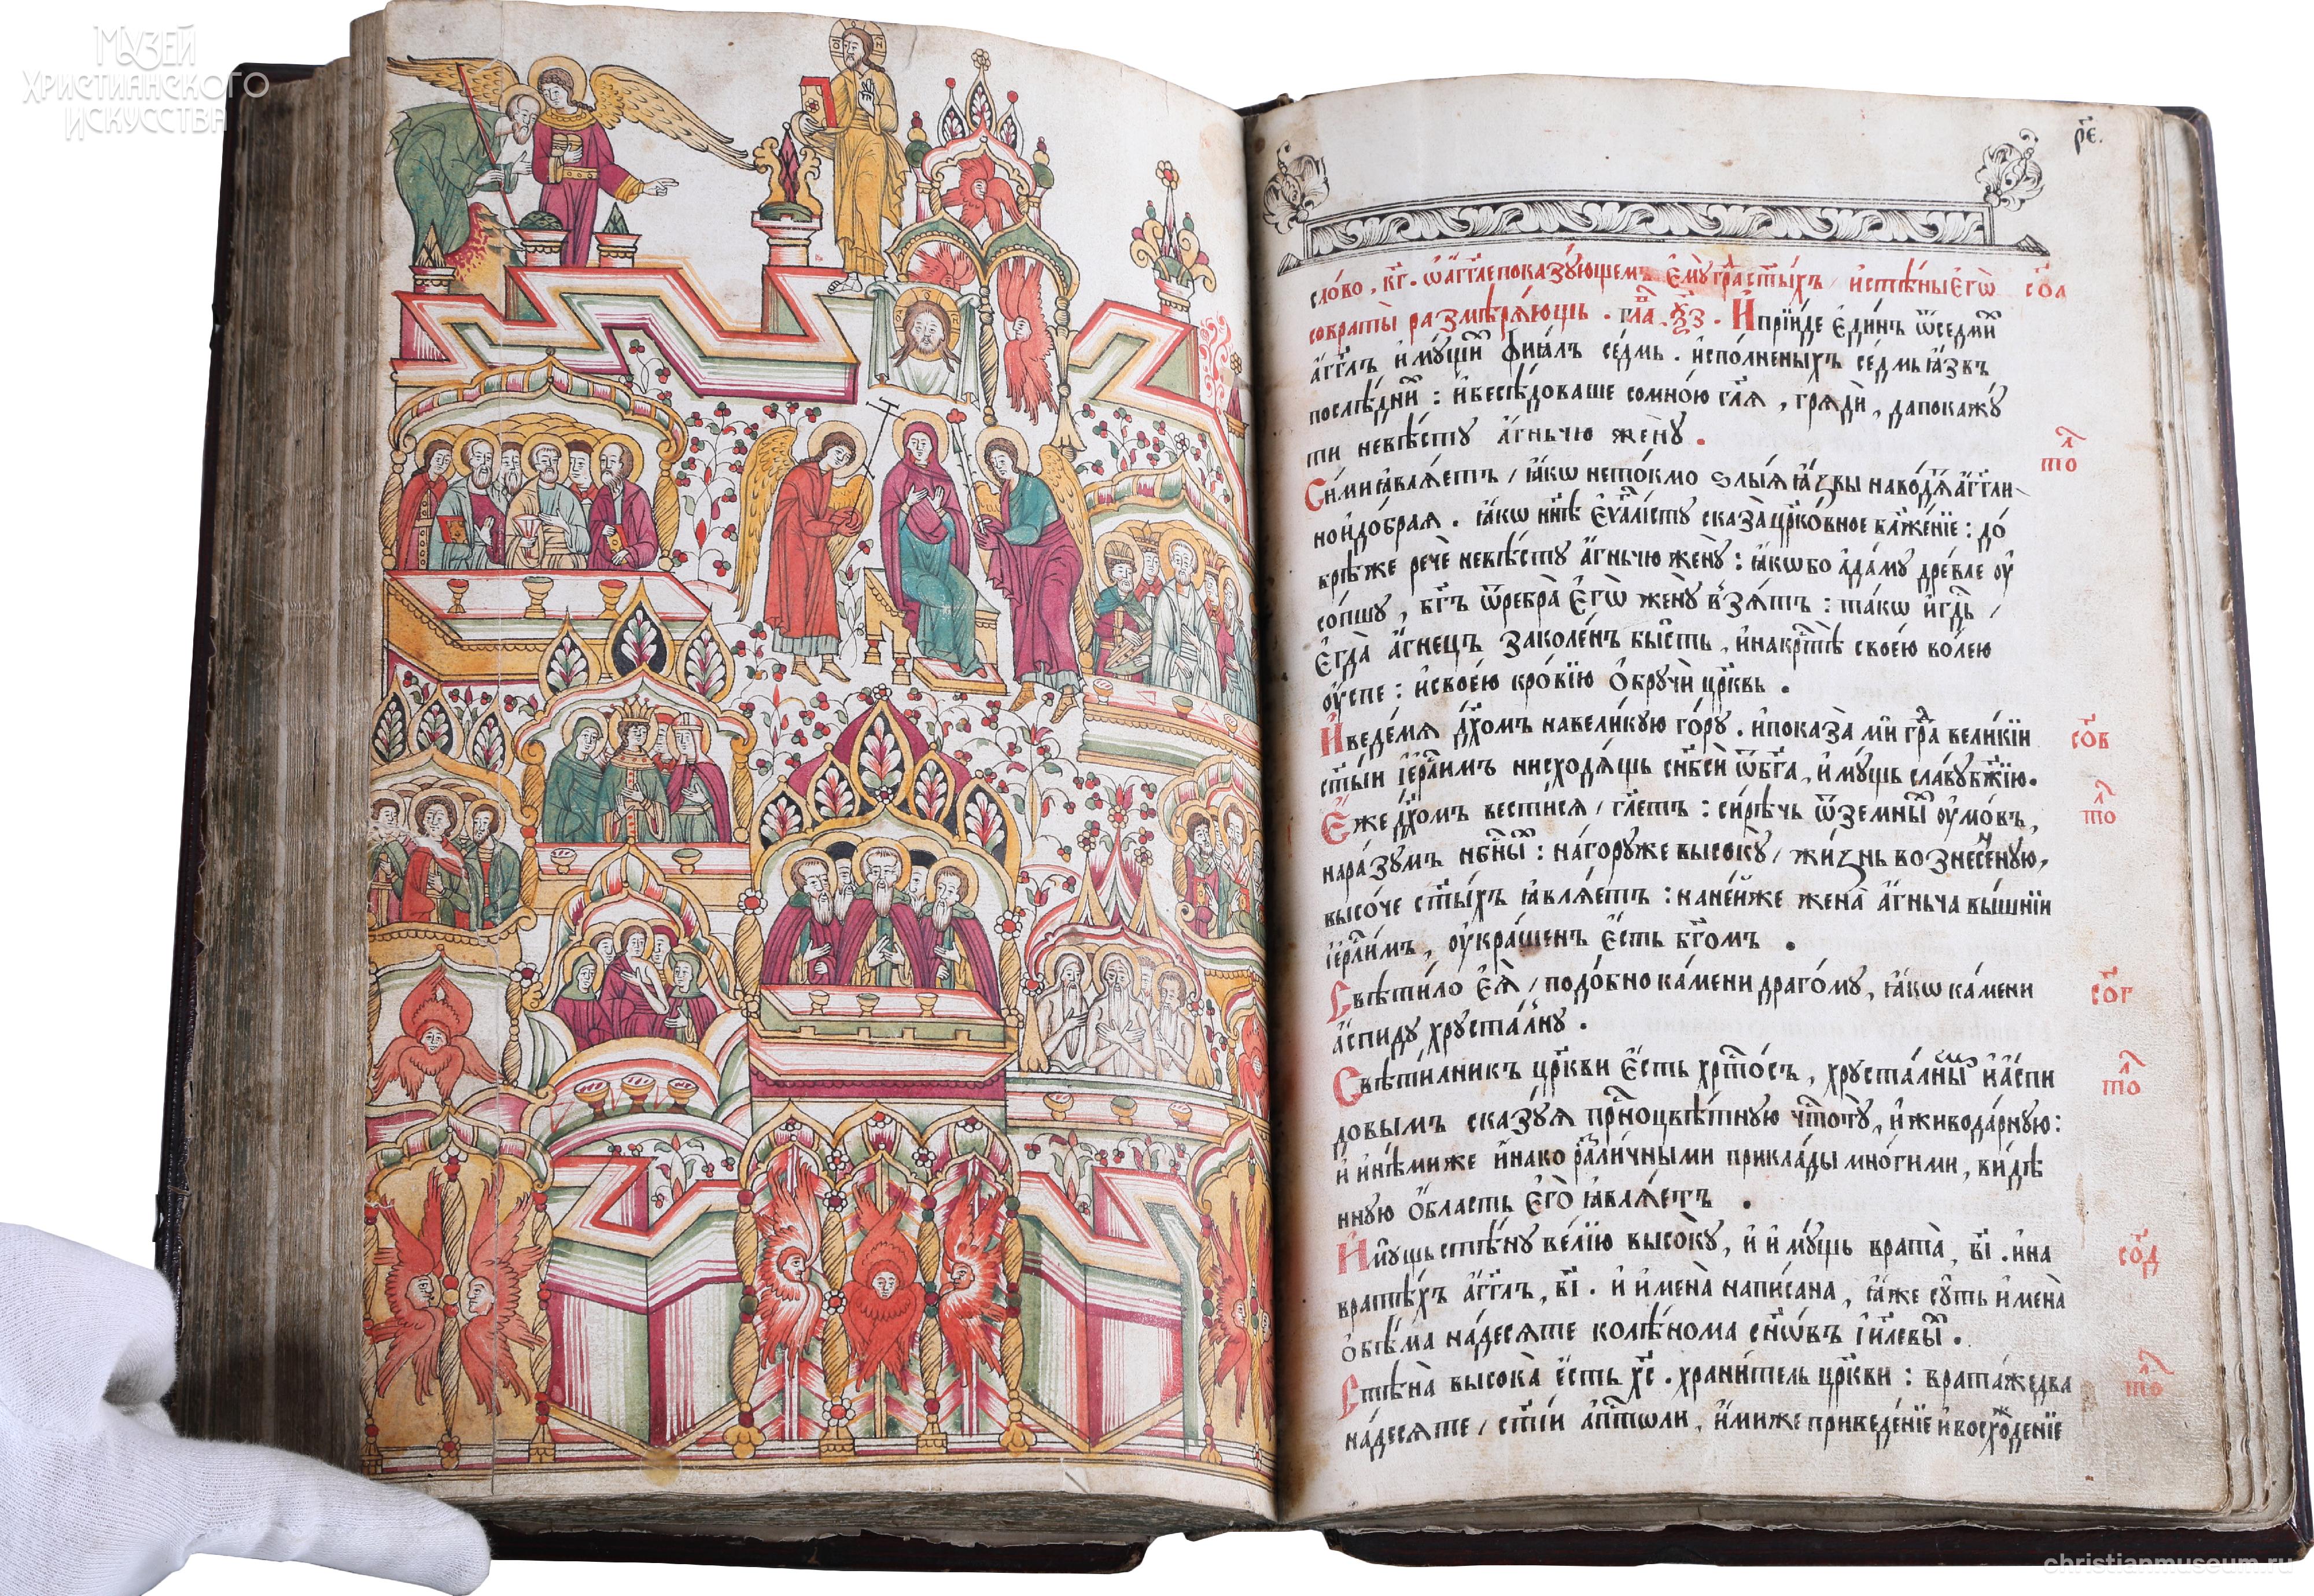 МУЗЕЙ
ХРИСТИАНСКОГО
ИСКУССТВА
р҃е.
сло́во, к҃г. ѡ҆ а҆́гг҃ле показꙋ́ющемъ є҆мꙋ̀ гра́ ст҃ы́хъ / и҆ стѣ́ны є҆гѡ̀ со҃а
со враты̀ размѣрѧ́ющь. гла̀ ѯ҃з. И҆ прїи́де є҆ди́нъ ѿ седми́
а҆́гг҃лъ и҆мꙋ́щи фїа́лъ се́дмь. и҆спо́лненыхъ се́дмь ꙗ҆́звъ
послѣ́дни: и҆ бесѣ́доваше со мно́ю гл҃ѧ, грѧдѝ, да покажꙋ́
ти невѣ́стꙋ а҆́гньчю женꙋ̀.
Си́ми ꙗ҆влѧ́етъ / ꙗ҆́кѡ не то́кмо ѕлы́ѧ ꙗ҆́звы наво́дѧ а҆́гг҃ли то
но и҆ до́браѧ. ꙗ҆́кѡ нн҃ѣ є҆ѵ҃алі́стꙋ сказа̀ цр҃ко́вное бл҃же́нїе: до́
брѣ́ же речѐ невѣ́стꙋ а҆́гньчю женꙋ̀: ꙗ҆́кѡ бо а҆да́мꙋ дре́вле ᲂу҆
со́пшꙋ, бг҃ъ ѿ ребра̀ є҆гѡ̀ женꙋ̀ взѧ́тъ: та́кѡ и҆ гдⷭ҇ь /
є҆гда̀ а҆́гнецъ заколе́нъ бы́сть, и҆ на крⷭ҇тѣ̀ свое́ю во́лею
ᲂу҆спѐ: и҆ свое́ю кро́вїю ѻ҆брꙋчѝ цр҃квь.
И҆ веде́ мѧ дх҃омъ на вели́кꙋю го́рꙋ. и҆ показа̀ ми гра́ вели́кїи со҃в
ст҃ы́и і҆ер҃ли́мъ нисходѧ́щь с нб҃сѝ ѿ бг҃а, и҆мꙋ́щь сла́вꙋ бж҃їю.
Є҆́же дх҃омъ вести́сѧ / гл҃етъ: си́рѣчь ѿ земны́ ᲂу҆мо́въ, то
на ра́зꙋмъ нбⷭ҇ны́: на го́рꙋ же высо́кꙋ / жи́знь вознесе́ннꙋю,
высо́че ст҃ы́хъ ꙗ҆влѧ́етъ: на не́йже жена̀ а҆́гньча вы́шнїи
і҆ер҃ли́мъ, ᲂу҆кра́шенъ є҆́сть бг҃омъ.
Свѣти́ло є҆ѧ̀ / подо́бно ка́мени драго́мꙋ, ꙗ҆́кѡ ка́мени со҃г
а҆́спидꙋ хрꙋста́лнꙋ.
Свѣти́лникъ цр҃кви є҆́сть хрⷭ҇то́съ, хрꙋста́лны и҆ а҆́спи то
довымъ сказꙋ́ѧ прⷭ҇ноцвѣ́тнꙋю чⷭ҇тотꙋ̀, и҆ живода́рнꙋю:
и҆ и҆нѣ́ми же и҆́нако разли́чными прикла́ды мно́гими, ви́дѣ
ннꙋю ѻ҆́бласть є҆гѡ̀ ꙗ҆влѧ́етъ.
И҆мꙋ́щь стѣ́нꙋ ве́лїю высо́кꙋ, и҆ и҆мꙋ́щь врата̀, в҃і. и҆ на со҃д
вратѣ́хъ а҆́гг҃лъ, в҃і. и҆ и҆мена̀ напи́сана, ꙗ҆́же сꙋ́ть и҆мена̀
ѻ҆бѣ́ма на́десѧте колѣ́нома сн҃ѡ́въ і҆и҃левы́.
Стѣна̀ высока̀ є҆́сть хⷭ҇. храни́тель цр҃кви: врата́ же два то
на́десѧте / ст҃і́и а҆пⷭ҇толи, и҆́миже приведе́нїе и҆ восхожде́нїе
christianmuseum.ru